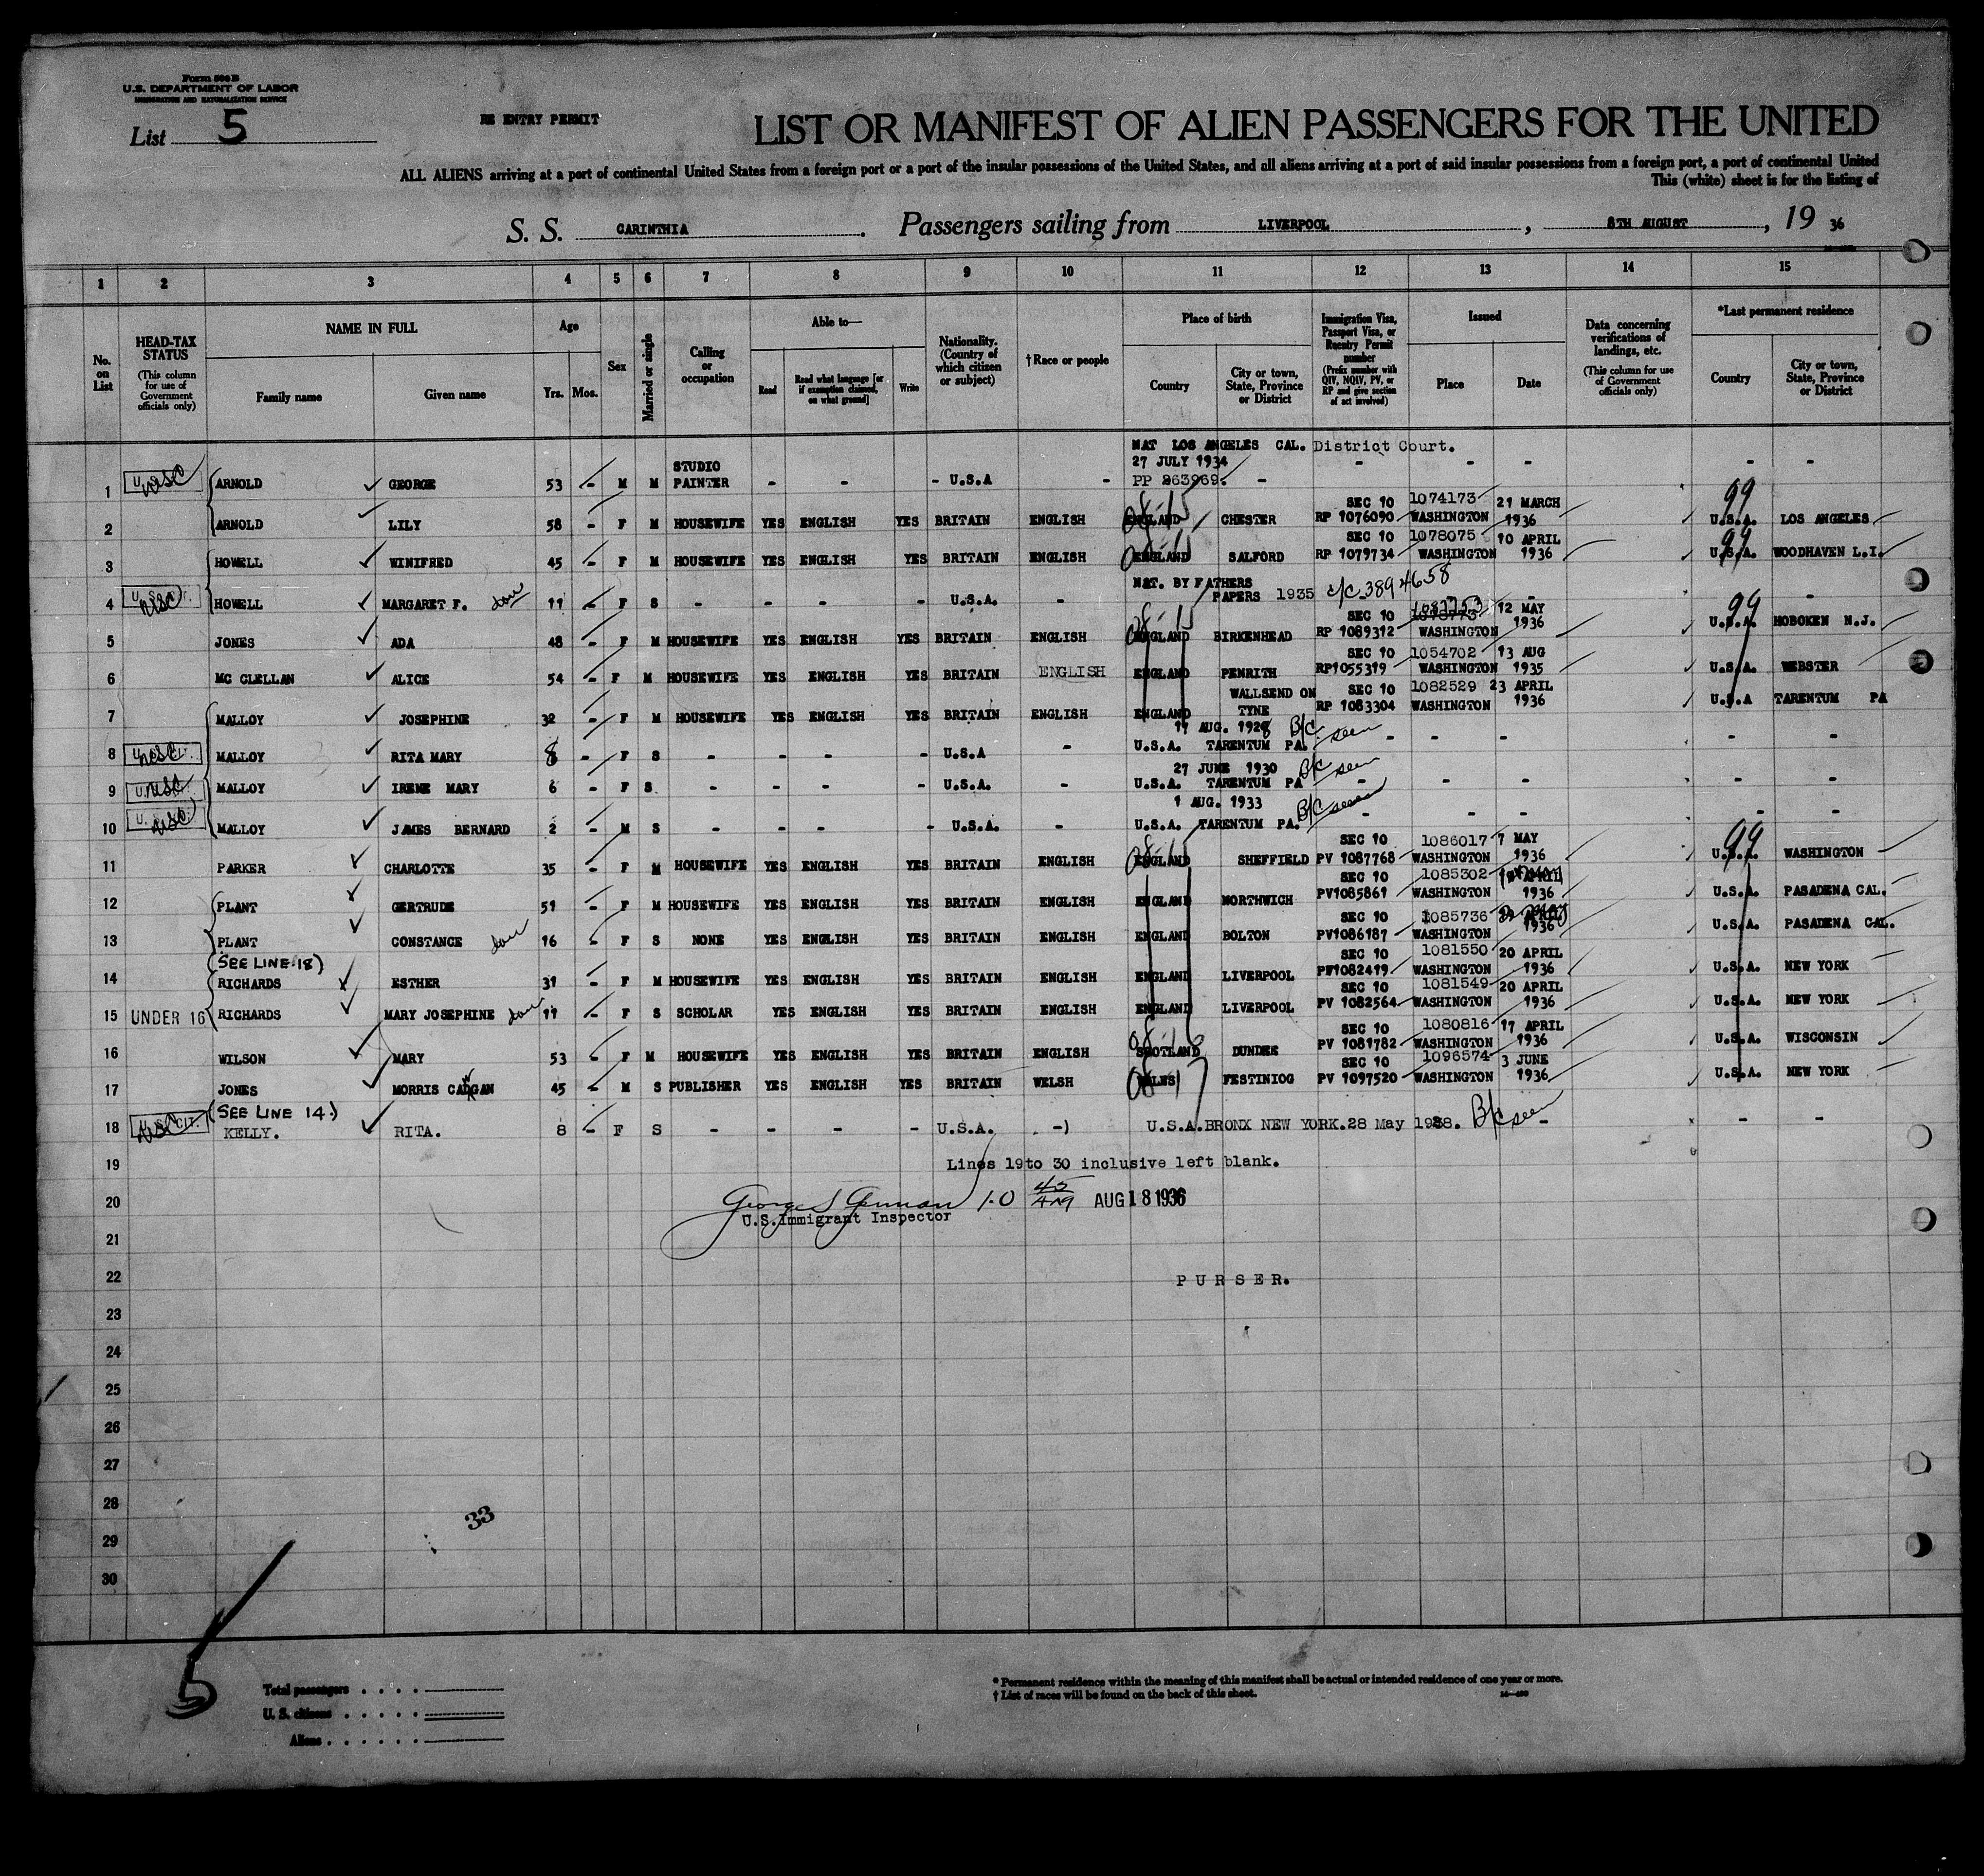 Form 500 B
U.S. DEPARTMENT OF LABOR
IMMIGRATION AND NATURALIZATION SERVICE
List 5
RE ENTRY PERMIT
LIST OR MANIFEST OF ALIEN PASSENGERS FOR THE UNITED
ALL ALIENS arriving at a port of continental United States from a foreign port or a port of the insular possessions of the United States, and all aliens arriving at a port of said insular possessions from a foreign port, a port of continental United
This (white) sheet is for the listing of
S. S. CARINTHIA. Passengers sailing from LIVERPOOL, 8TH AUGUST, 19 36
1 2 3 4 5 6 7 8 9 10 11 12 13 14 15
No. on List
HEAD-TAX STATUS (This column for use of Government officials only)
NAME IN FULL
Family name Given name
Age
Yrs. Mos.
Sex
Married or single
Calling or occupation
Able to—
Read Read what language [or if exemption claimed, on what ground] Write
Nationality. (Country of which citizen or subject)
†Race or people
Place of birth
Country City or town, State, Province or District
Immigration Visa, Passport Visa, or Reentry Permit number (Prefix number with QIV, NQIV, PV, or RP and give section of act involved)
Issued
Place Date
Data concerning verifications of landings, etc. (This column for use of Government officials only)
*Last permanent residence
Country City or town, State, Province or District
NAT LOS ANGELES CAL. District Court.
27 JULY 1934
1 USC ARNOLD GEORGE 53 - M M STUDIO PAINTER - - - U.S.A - PP 263969. - - - - - -
SEC 10 1074173 21 MARCH 99
2 ARNOLD LILY 58 - F M HOUSEWIFE YES ENGLISH YES BRITAIN ENGLISH ENGLAND CHESTER RP 1076090 WASHINGTON 1936 U.S.A. LOS ANGELES
SEC 10 1078075 10 APRIL 99
3 HOWELL WINIFRED 45 - F M HOUSEWIFE YES ENGLISH YES BRITAIN ENGLISH ENGLAND SALFORD RP 1079734 WASHINGTON 1936 U.S.A. WOODHAVEN L.I.
NAT. BY FATHERS
4 USC HOWELL MARGARET F. dau 11 - F S - - - - U.S.A. - PAPERS 1935 c/c 3894658 - - -
SEC 10 1087753 12 MAY 99
5 JONES ADA 48 - F M HOUSEWIFE YES ENGLISH YES BRITAIN ENGLISH ENGLAND BIRKENHEAD RP 1089312 WASHINGTON 1936 U.S.A. HOBOKEN N.J.
SEC 10 1054702 13 AUG
6 MC CLELLAN ALICE 54 - F M HOUSEWIFE YES ENGLISH YES BRITAIN ENGLISH ENGLAND PENRITH RP1055319 WASHINGTON 1935 U.S.A. WEBSTER
WALLSEND ON SEC 10 1082529 23 APRIL
7 MALLOY JOSEPHINE 32 - F M HOUSEWIFE YES ENGLISH YES BRITAIN ENGLISH ENGLAND TYNE RP 1083304 WASHINGTON 1936 U.S.A TARENTUM PA
17 AUG. 1928 B/C seen
8 USC MALLOY RITA MARY 8 - F S - - - - U.S.A - U.S.A. TARENTUM PA. - - - - -
27 JUNE 1930 B/C seen
9 USC MALLOY IRENE MARY 6 - F S - - - - U.S.A. - U.S.A. TARENTUM PA - - - - -
1 AUG. 1933 B/C seen
10 USC MALLOY JAMES BERNARD 2 - M S - - - - U.S.A. - U.S.A. TARENTUM PA. - - - - -
SEC 10 1086017 7 MAY 99
11 PARKER CHARLOTTE 35 - F M HOUSEWIFE YES ENGLISH YES BRITAIN ENGLISH ENGLAND SHEFFIELD PV 1087768 WASHINGTON 1936 U.S.A. WASHINGTON
SEC 10 1085302
12 PLANT GERTRUDE 51 - F M HOUSEWIFE YES ENGLISH YES BRITAIN ENGLISH ENGLAND NORTHWICH PV1085861 WASHINGTON 1936 U.S.A. PASADENA CAL.
SEC 10 1085736
13 PLANT CONSTANCE dau 16 - F S NONE YES ENGLISH YES BRITAIN ENGLISH ENGLAND BOLTON PV1086187 WASHINGTON 1936 U.S.A. PASADENA CAL.
(SEE LINE 18) SEC 10 1081550 20 APRIL
14 RICHARDS ESTHER 31 - F M HOUSEWIFE YES ENGLISH YES BRITAIN ENGLISH ENGLAND LIVERPOOL PV1082419 WASHINGTON 1936 U.S.A. NEW YORK
SEC 10 1081549 20 APRIL
15 UNDER 16 RICHARDS MARY JOSEPHINE dau 11 - F S SCHOLAR YES ENGLISH YES BRITAIN ENGLISH ENGLAND LIVERPOOL PV 1082564 WASHINGTON 1936 U.S.A. NEW YORK
SEC 10 1080816 17 APRIL
16 WILSON MARY 53 - F M HOUSEWIFE YES ENGLISH YES BRITAIN ENGLISH SCOTLAND DUNDEE PV 1081782 WASHINGTON 1936 U.S.A. WISCONSIN
SEC 10 1096574 3 JUNE
17 JONES MORRIS CADWGAN 45 - M S PUBLISHER YES ENGLISH YES BRITAIN WELSH WALES FESTINIOG PV 1097520 WASHINGTON 1936 U.S.A. NEW YORK
(SEE LINE 14.)
18 USC KELLY. RITA. 8 - F S - - - - U.S.A. -) U.S.A. BRONX NEW YORK. 28 May 1928. B/C seen - - -
19 Lines 19to 30 inclusive left blank.
20 AUG 18 1936
U.S.Immigrant Inspector
21
22 PURSER.
23
24
25
26
27
28
33
29
30
5
Total passengers
U. S. citizens
Aliens
* Permanent residence within the meaning of this manifest shall be actual or intended residence of one year or more.
† List of races will be found on the back of this sheet.